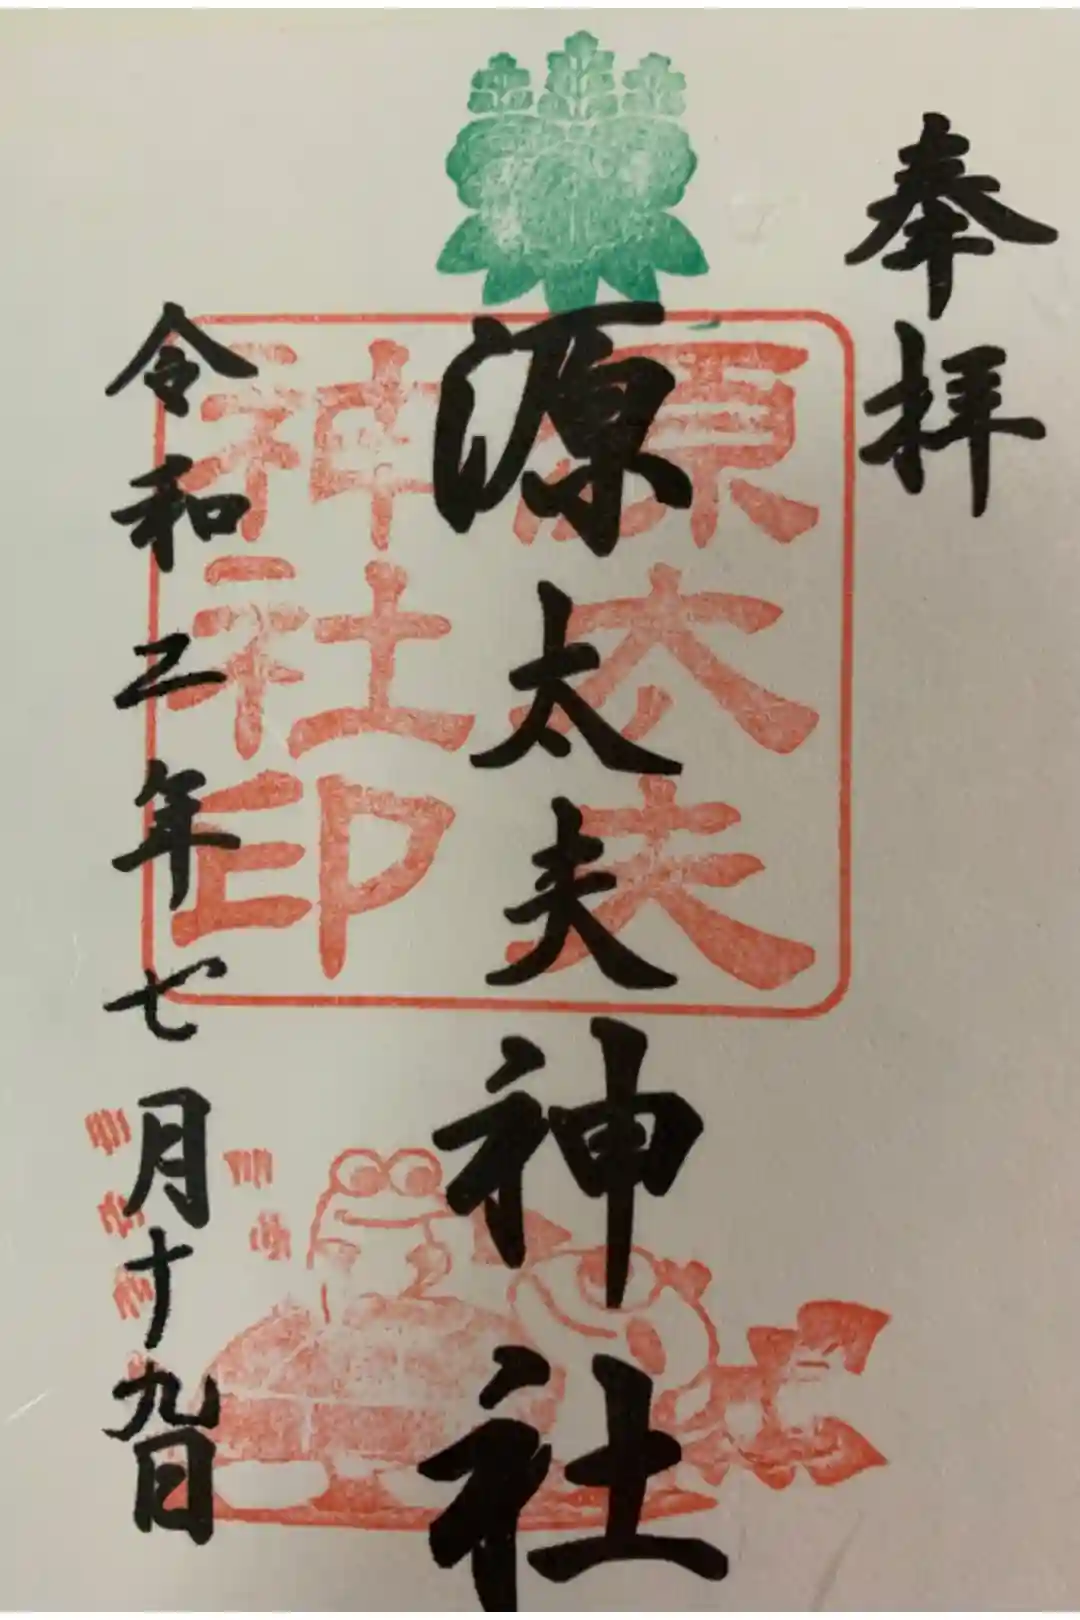 奉拝
源太夫神社
令和二年七月十九日
源太夫
神社印